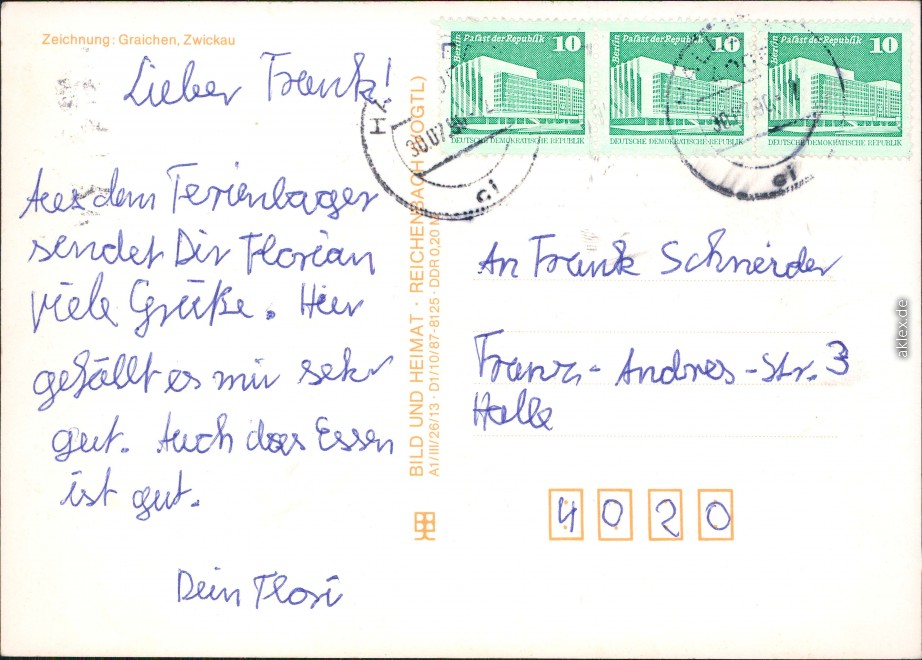 Zeichnung: Graichen, Zwickau
Lieber Frank!
Aus dem Ferienlager
sendet Dir Florian
viele Grüße. Hier
gefällt es mir sehr
gut. Auch das Essen
ist gut.
Dein Flori
BILD UND HEIMAT · REICHENBACH (VOGTL)
A1/III/26/13 · D1/10/87-8125 · DDR 0,20 M
Berlin Palast der Republik 10
DEUTSCHE DEMOKRATISCHE REPUBLIK
Berlin Palast der Republik 10
DEUTSCHE DEMOKRATISCHE REPUBLIK
Berlin Palast der Republik 10
DEUTSCHE DEMOKRATISCHE REPUBLIK
30.07.90
An Frank Schneider
Franz-Andres-Str. 3
Halle
4020
aklex.de